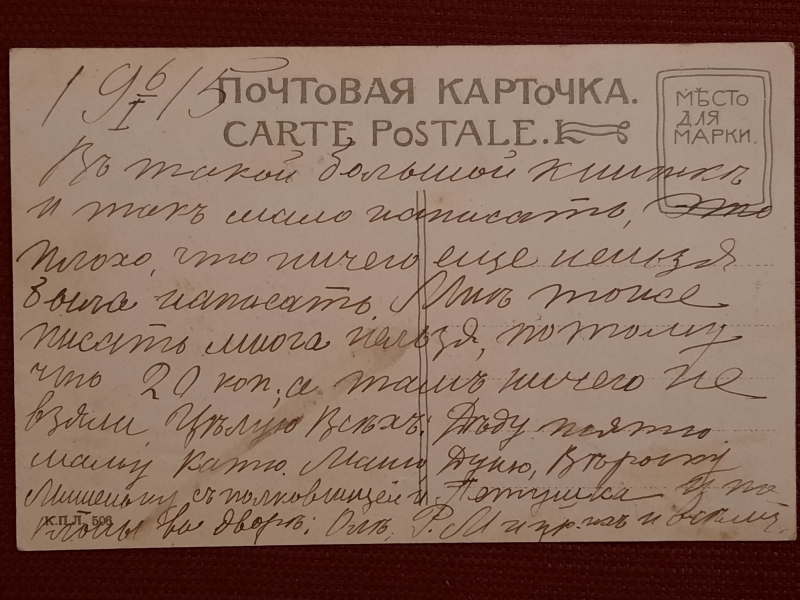 19 6/I 15
ПОЧТОВАЯ КАРТОЧКА.
CARTE POSTALE.
МѢСТО
ДЛЯ
МАРКИ.
Въ такой большой книжкѣ
и такъ мало написать, Это
плохо, что ничего еще нельзя
было написать. Мнѣ тоже
писать много нельзя, потому
что 20 коп, а тамъ ничего не
взяли Цѣлую Всѣхъ: Дѣду тятю
маму Катю Маню Дуню, Вѣрочку
Мишеньку с Петушка и по
клоны во дворъ:
К.П.Л. 506